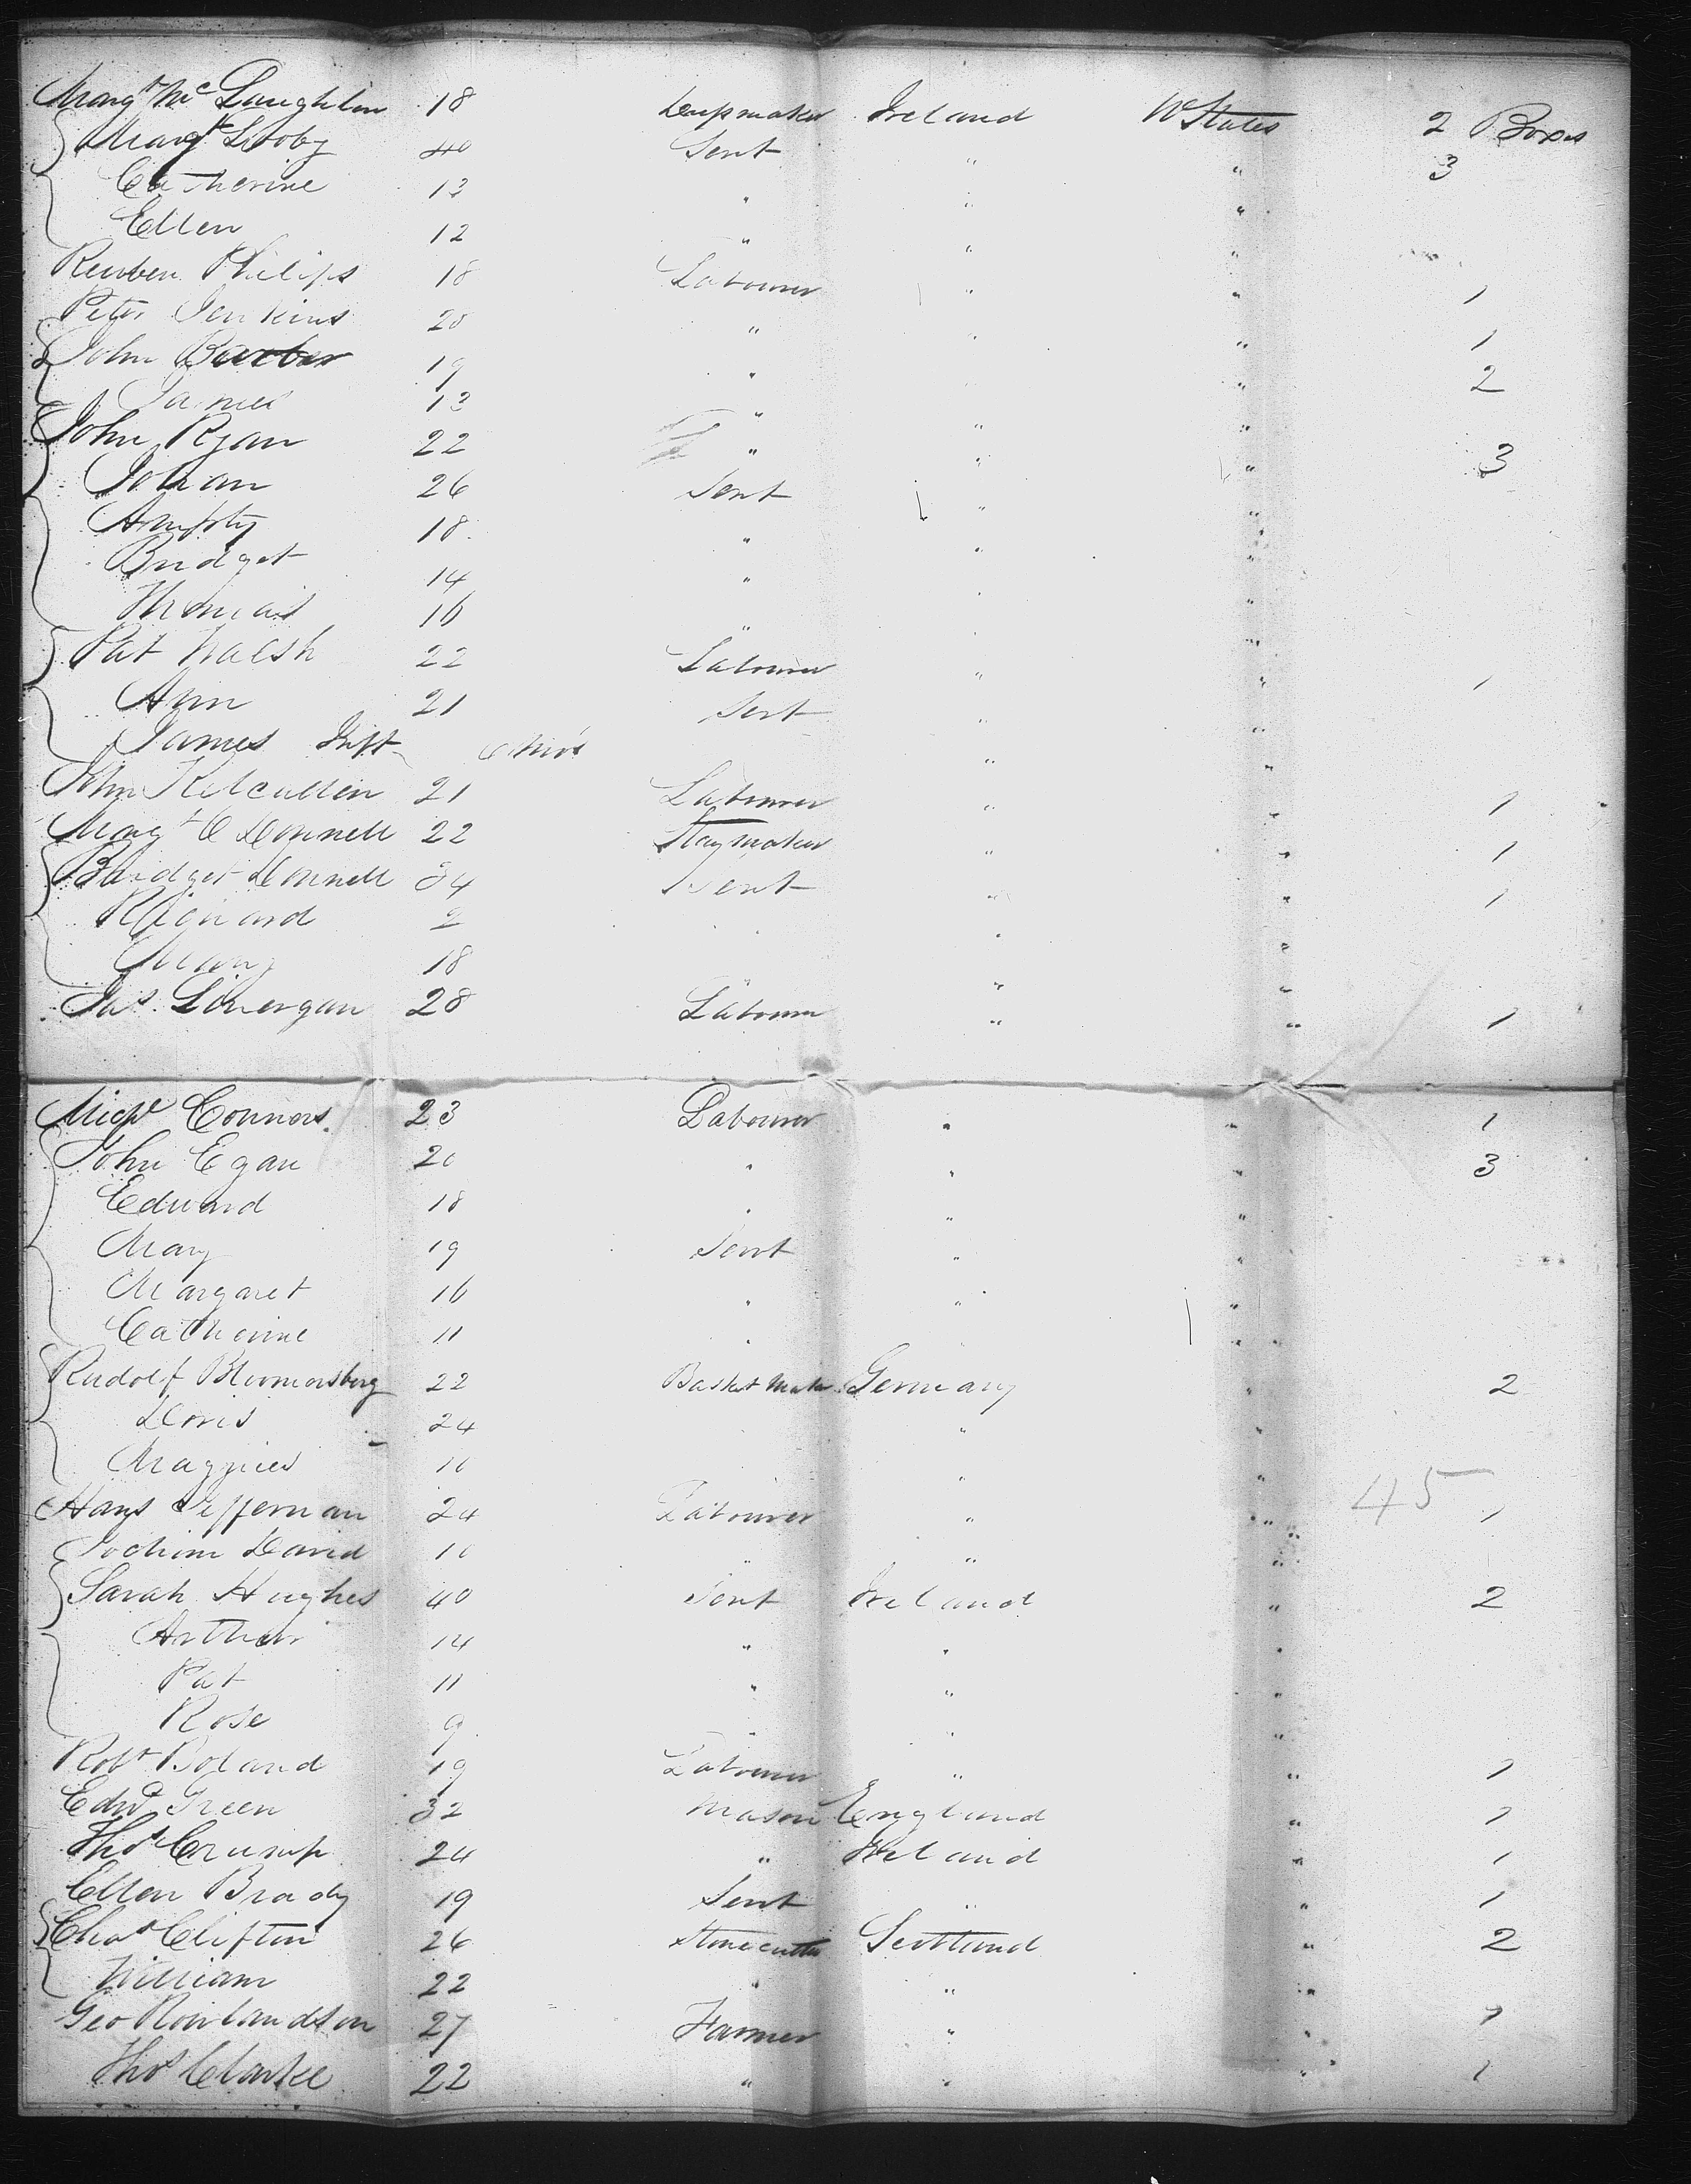 Marg^t Mc Laughlin 18 Ireland U States 2 Boxes
Marg^t Looby 40 Servt " " 3
Catherine 13 " " "
Ellen 12 " " "
Reuben Philips 18 Labourer " " 1
Peter Jenkins 20 " " " 1
John Barber 19 " " " 2
James 13 " " "
John Ryan 22 " " " 3
Johan 26 Servt " "
18 " " "
Bridget 14 " " "
Thomas 16 " " "
Pat Walsh 22 Labourer " " 1
Ann 21 Servt " "
James Inft " "
John Kilcullen 21 Labourer " " 1
Marg^t O Donnell 22 Staymaker " " 1
Bridget Donnell 34 Servt " " 1
Richard 2 " "
Mary 18 " " "
Jas Lonergan 28 Labourer " " 1
Michl Connors 23 Labourer " " 1
John Egan 20 " " " 3
Edward 18 " " "
Mary 19 Servt " "
Margaret 16 " " "
Catherine 11 " " "
Rudolf 22 Basket Maker Germany " 2
Doris 24 " "
" "
Hans 24 Labourer " " 1
45
Jochim David " " "
Sarah Hughes 40 Servt Ireland " 2
Arthur 14 " "
Pat 11 " " "
Rose 9 " " "
Robt Boland 19 Labourer " " 1
Edwd Green 32 Mason England " 1
Thos Crump 24 " Ireland " 1
Ellen Brady 19 Servt " " 1
Chas Clifton 26 Stonecutter Scotland " 2
William 22 " " "
Geo Rowlandson 27 Farmer " " 1
Thos Clarke 22 " " " 1